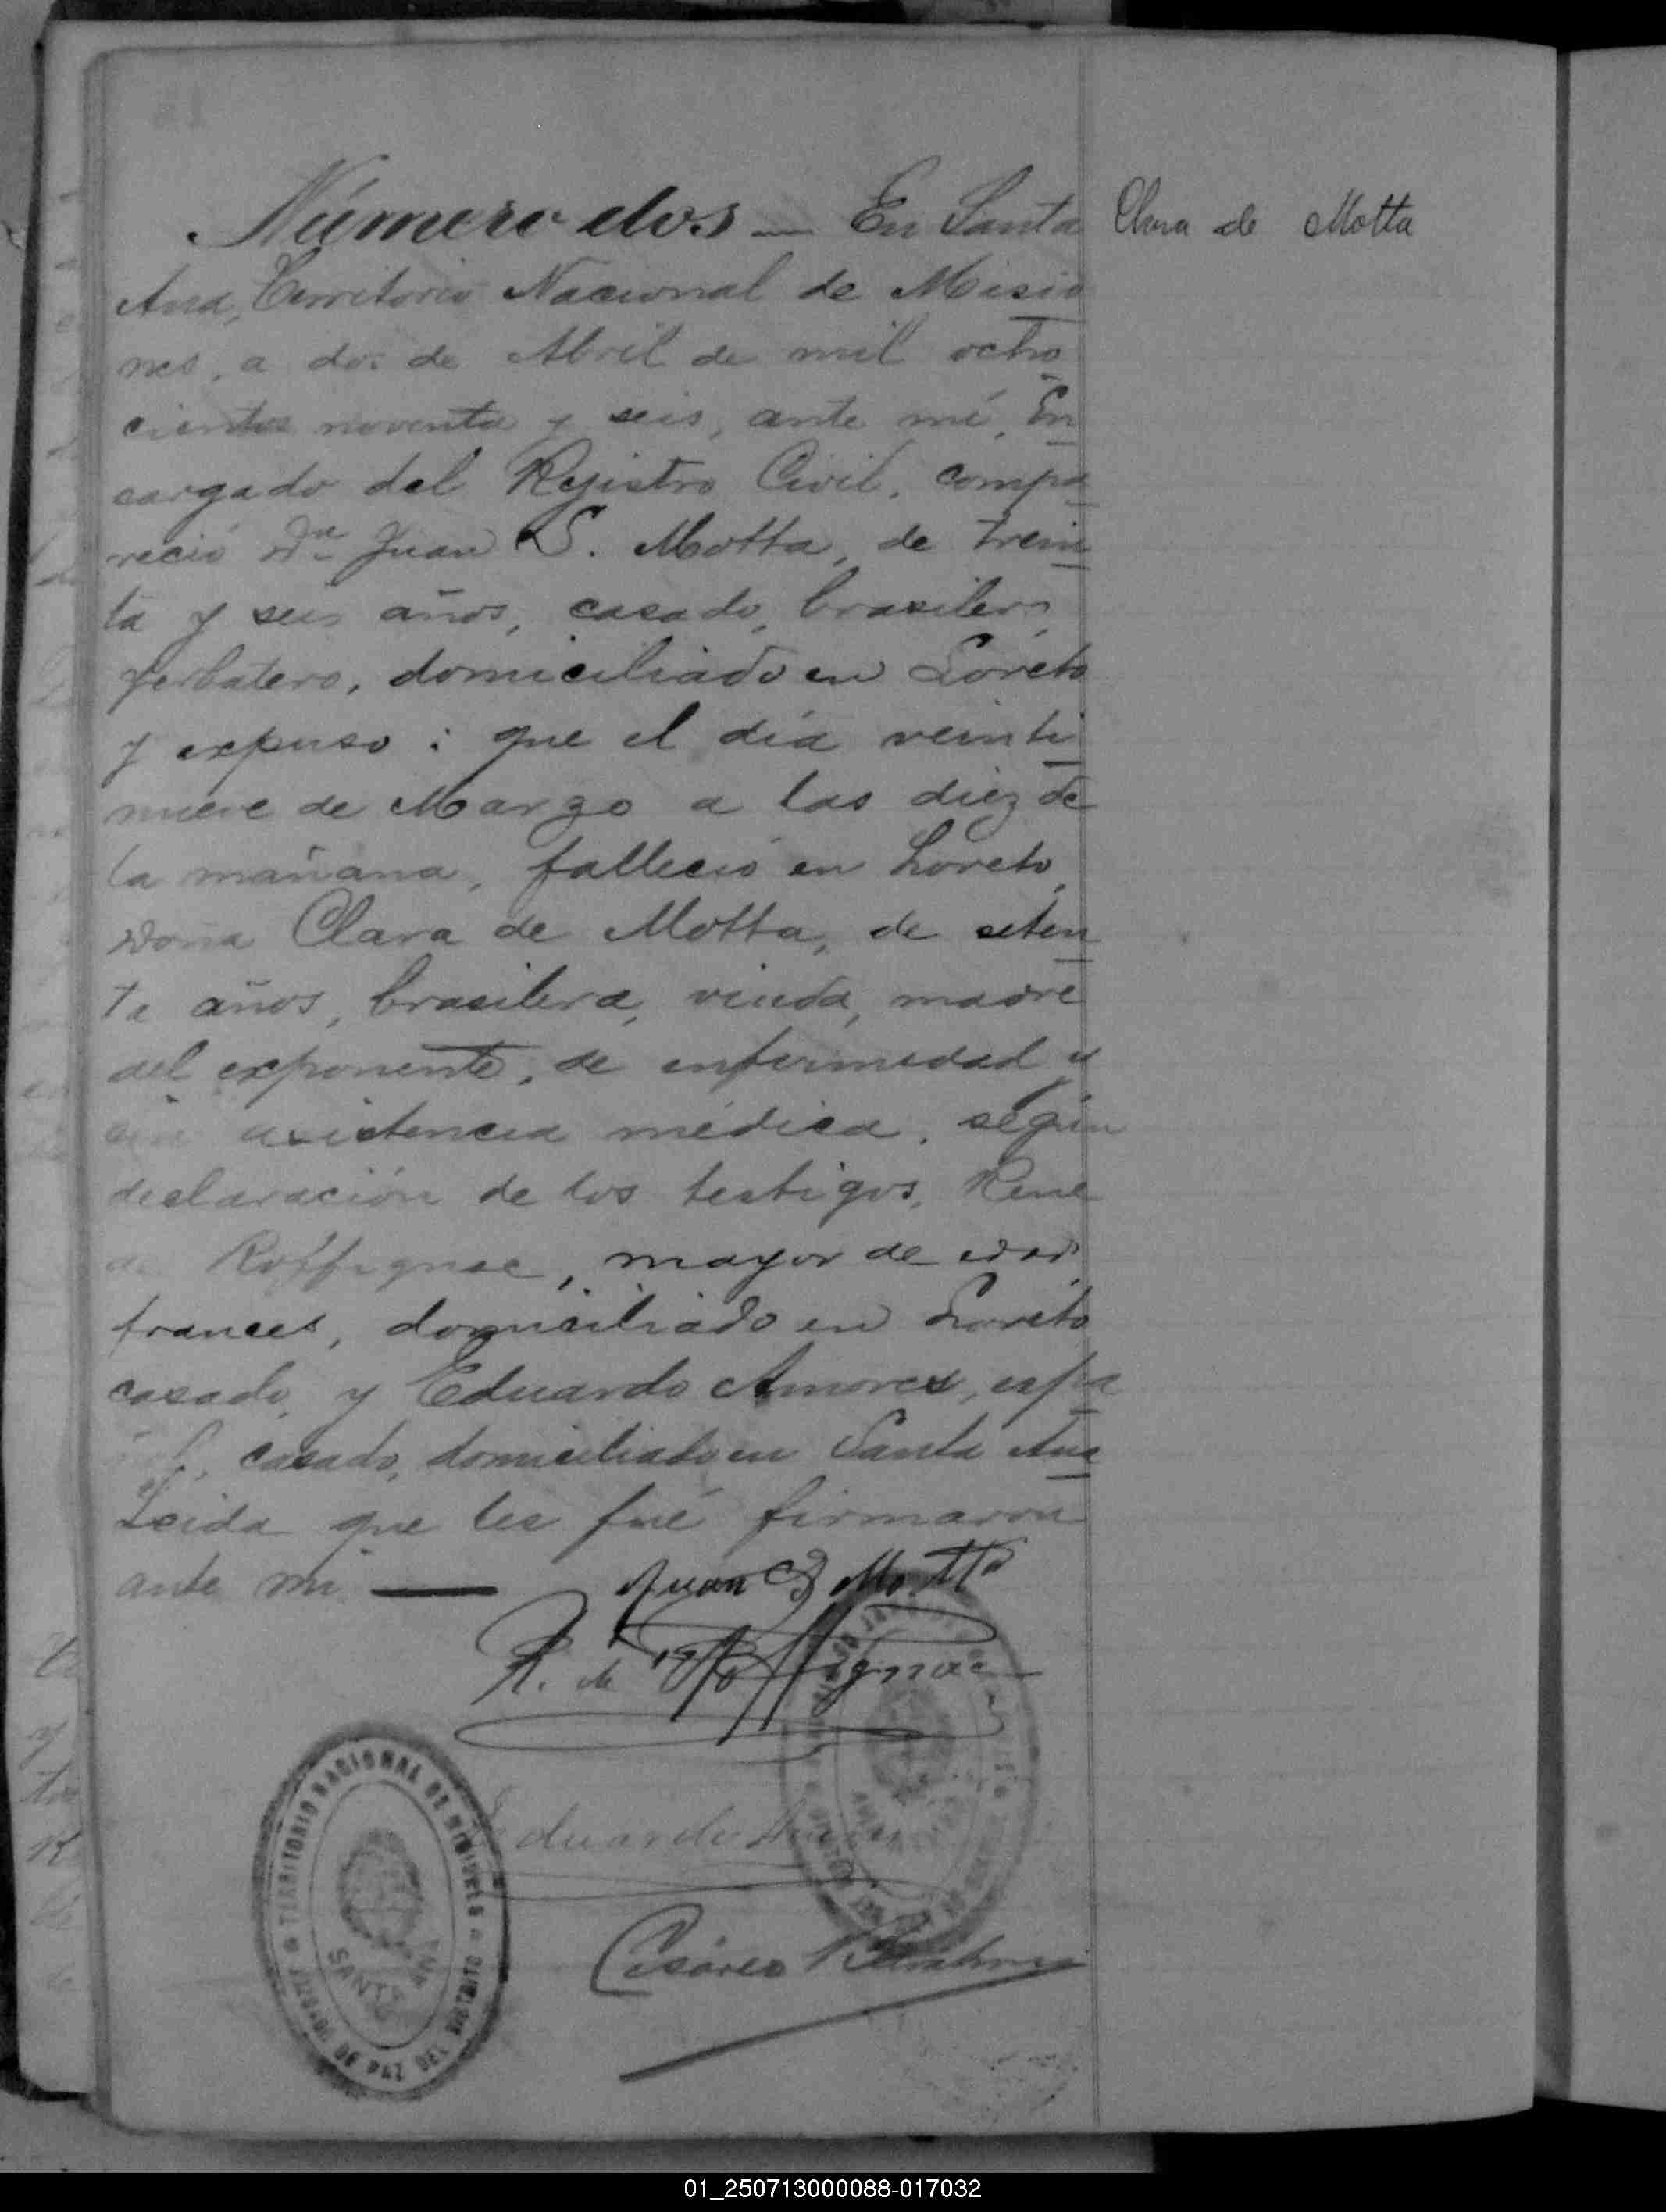 Número dos — En Santa
Clara de Motta
Ana, Territorio Nacional de Misio
nes, a dos de Abril de mil ocho
cientos noventa y seis, ante mí, En
cargado del Rejistro Civil, compa
reció Dn Juan S. Motta, de trein
ta y seis años, casado, brasilero,
yerbatero, domiciliado en Loreto
y expuso: que el día veinti
nueve de Marzo a las diez de
la mañana, falleció en Loreto,
Doña Clara de Motta, de seten
ta años, brasilera, viuda, madre
del exponente, de enfermedad y
sin asistencia médica, según
declaración de los testigos, Rene
de Roffignac, mayor de edad,
frances, domiciliado en Loreto
casado, y Eduardo Amores, espa
ñol, casado, domiciliado en Santa Ana
Leida que les fué firmaron
ante mi —
Juan S Motta
R. de Roffignac
Eduardo Amores
Cesáreo
TERRITORIO NACIONAL DE MISIONES
JUZGADO DE PAZ DEL DISTRITO
SANTA ANA
01_250713000088-017032